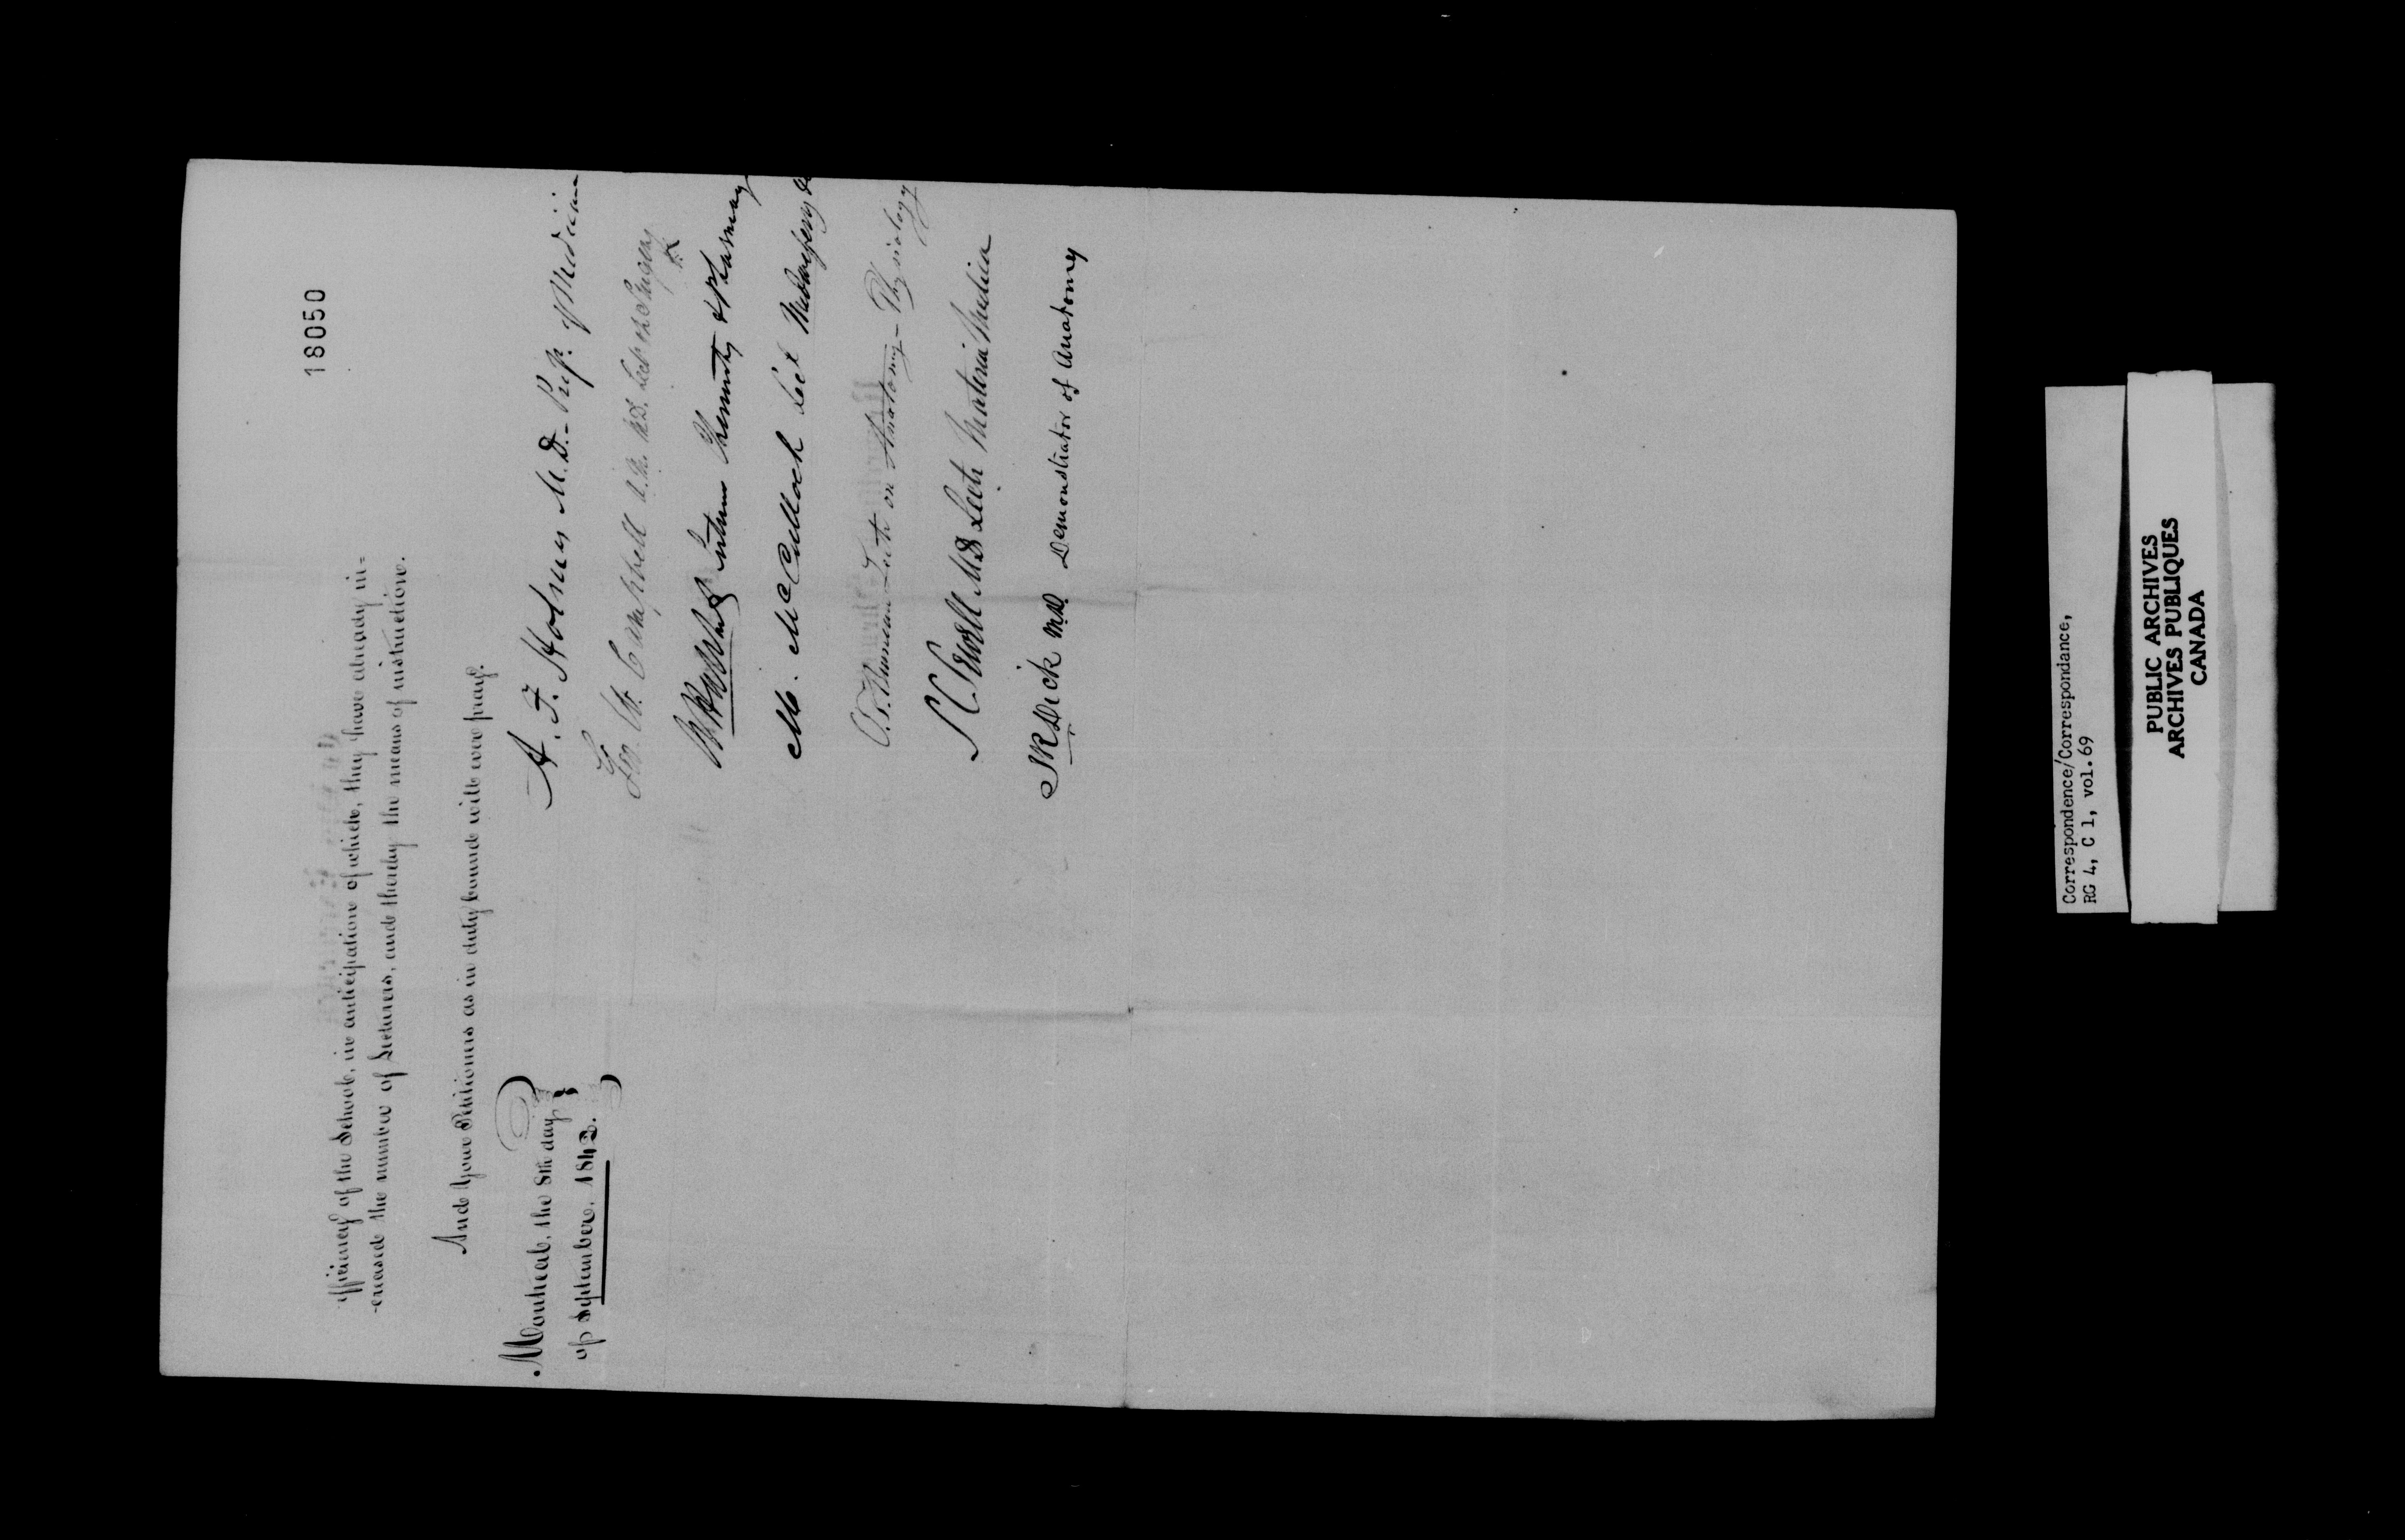 18050
efficiency of the School, in anticipation of which, they have already in=
-creased the number of Lecturers, and thereby the means of instruction.
And Your Petitioners as in duty bound will ever pray.
Montreal, the 8th day
of September. 1842.
A. F. Holmes M.D. - Prof. Medicine
Geo. W. Campbell A.M. M.D. Lect on Surgery
Lectures Chemistry & Pharmacy
M. McCulloch Lect Midwifery
Lectr on Anatomy - Physiology
S C Sewell MD Lectr Materia Medica
J R Dick M.D. Demonstrator of Anatomy
Correspondence/Correspondance,
RG 4, C 1, vol. 69
PUBLIC ARCHIVES
ARCHIVES PUBLIQUES
CANADA